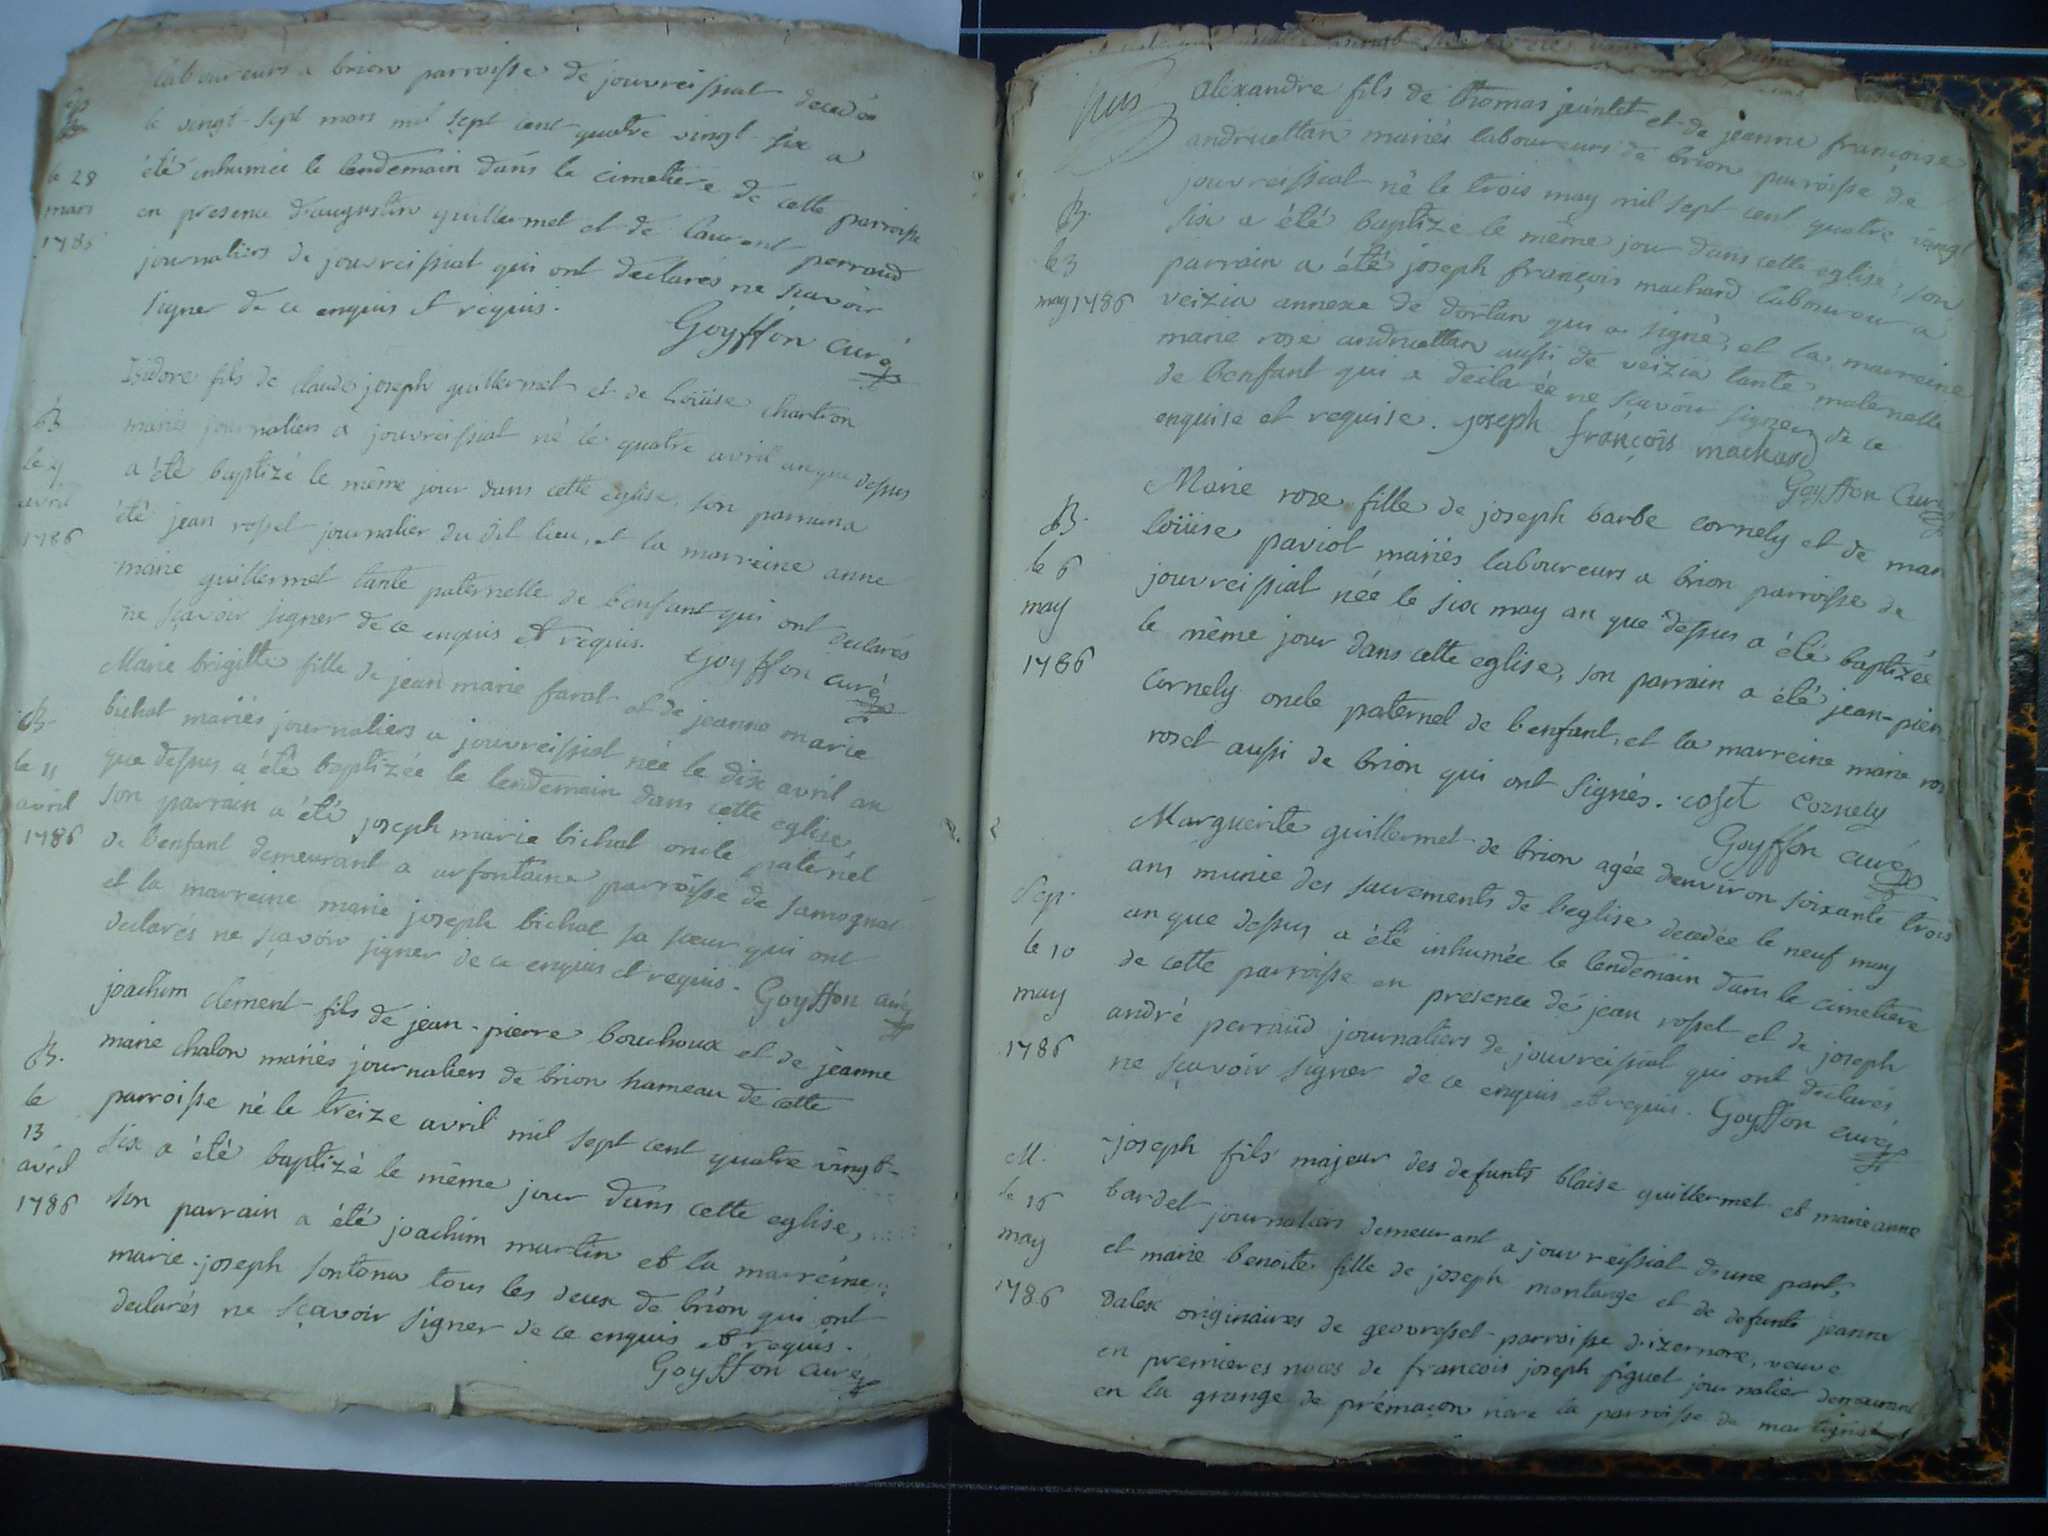 laboureurs a brion parroisse de jouvreissiat decedée
le vingt-sept mars mil sept cent quatre vingt-six a
été inhumée le lendemain dans le cimetiere de cette parroisse
en presence d'augustin guillermet et de laurent perraud
journaliers de jouvreissiat qui ont declarés ne sçavoir
signer de ce enquis et requis.
Goyffon curé
le 28
mars
1786
B
le 4
avril
1786
Isidore fils de claude joseph guillermet et de Loüise chartion
mariés journaliers a jouvreissiat né le quatre avril an que dessus
a été baptizé le même jour dans cette eglise, son parrain a
été jean rosset journalier du dit lieu, et la marreine anne
marie guillermet tante paternelle de l'enfant qui ont declarés
ne sçavoir signer de ce enquis et requis. Goyffon curé
B.
le 11
avril
1786
Marie brigitte fille de jean marie farat et de jeanne marie
bichat mariés journaliers a jouvreissiat née le dix avril an
que dessus a été baptizée le lendemain dans cette eglise,
son parrain a été joseph marie bichat oncle paternel
de l'enfant demeurant a arfontaine parroisse de samognat
et la marreine marie joseph bichat sa soeur qui ont
declarés ne sçavoir signer de ce enquis et requis. Goyffon curé
B.
le
13
avril
1786
joachim clement fils de jean-pierre bouchoux et de jeanne
marie chalon mariés journaliers de brion hameau de cette
parroisse né le treize avril mil sept cent quatre vingt-
six a été baptizé le même jour dans cette eglise,
son parrain a été joachim martin et la marreine
marie-joseph sontona tous les deux de brion qui ont
declarés ne sçavoir signer de ce enquis et requis.
Goyffon curé
B.
le 3
may 1786
alexandre fils de thomas jeantet et de jeanne françoise
andruettan mariés laboureurs de brion parroisse de
jouvreissiat né le trois may mil sept cent quatre vingt
six a été baptizé le même jour dans cette eglise, son
parrain a été joseph françois machard laboureur a
veizia annexe de dortan qui a signé, et la marreine
marie rose andruettan aussi de veizia tante maternelle
de l'enfant qui a declarée ne sçavoir signer de ce
enquise et requise. joseph françois machard
Goyffon curé
B.
le 6
may
1786
Marie rose fille de joseph barbe cornely et de mar
Loüise paviot mariés laboureurs a brion parroisse de
jouvreissiat née le six may an que dessus a été baptizée
le même jour dans cette eglise, son parrain a été jean-pier
cornely oncle paternel de l'enfant, et la marreine marie ros
roset aussi de brion qui ont signés. roset cornely
Goyffon curé
Sep.
le 10
may
1786
Marguerite guillermet de brion agée denviron soixante trois
ans munie des sacrements de l'eglise decedée le neuf may
an que dessus a été inhumée le lendemain dans le cimetiere
de cette parroisse en presence de jean rosset et de joseph
andré perraud journaliers de jouvreissiat qui ont declarés
ne sçavoir signer de ce enquis et requis. Goyffon curé
M.
le 16
may
1786
joseph fils majeur des defunts blaise guillermet et marie anne
bardet journaliers demeurant a jouvreissiat d'une part,
et marie benoite fille de joseph montange et de defunte jeanne
dalex originaires de geovresset parroisse d'izernore, veuve
en premieres noces de françois joseph piguet journalier demeurant
en la grange de prémaçon riere la parroisse de martignat